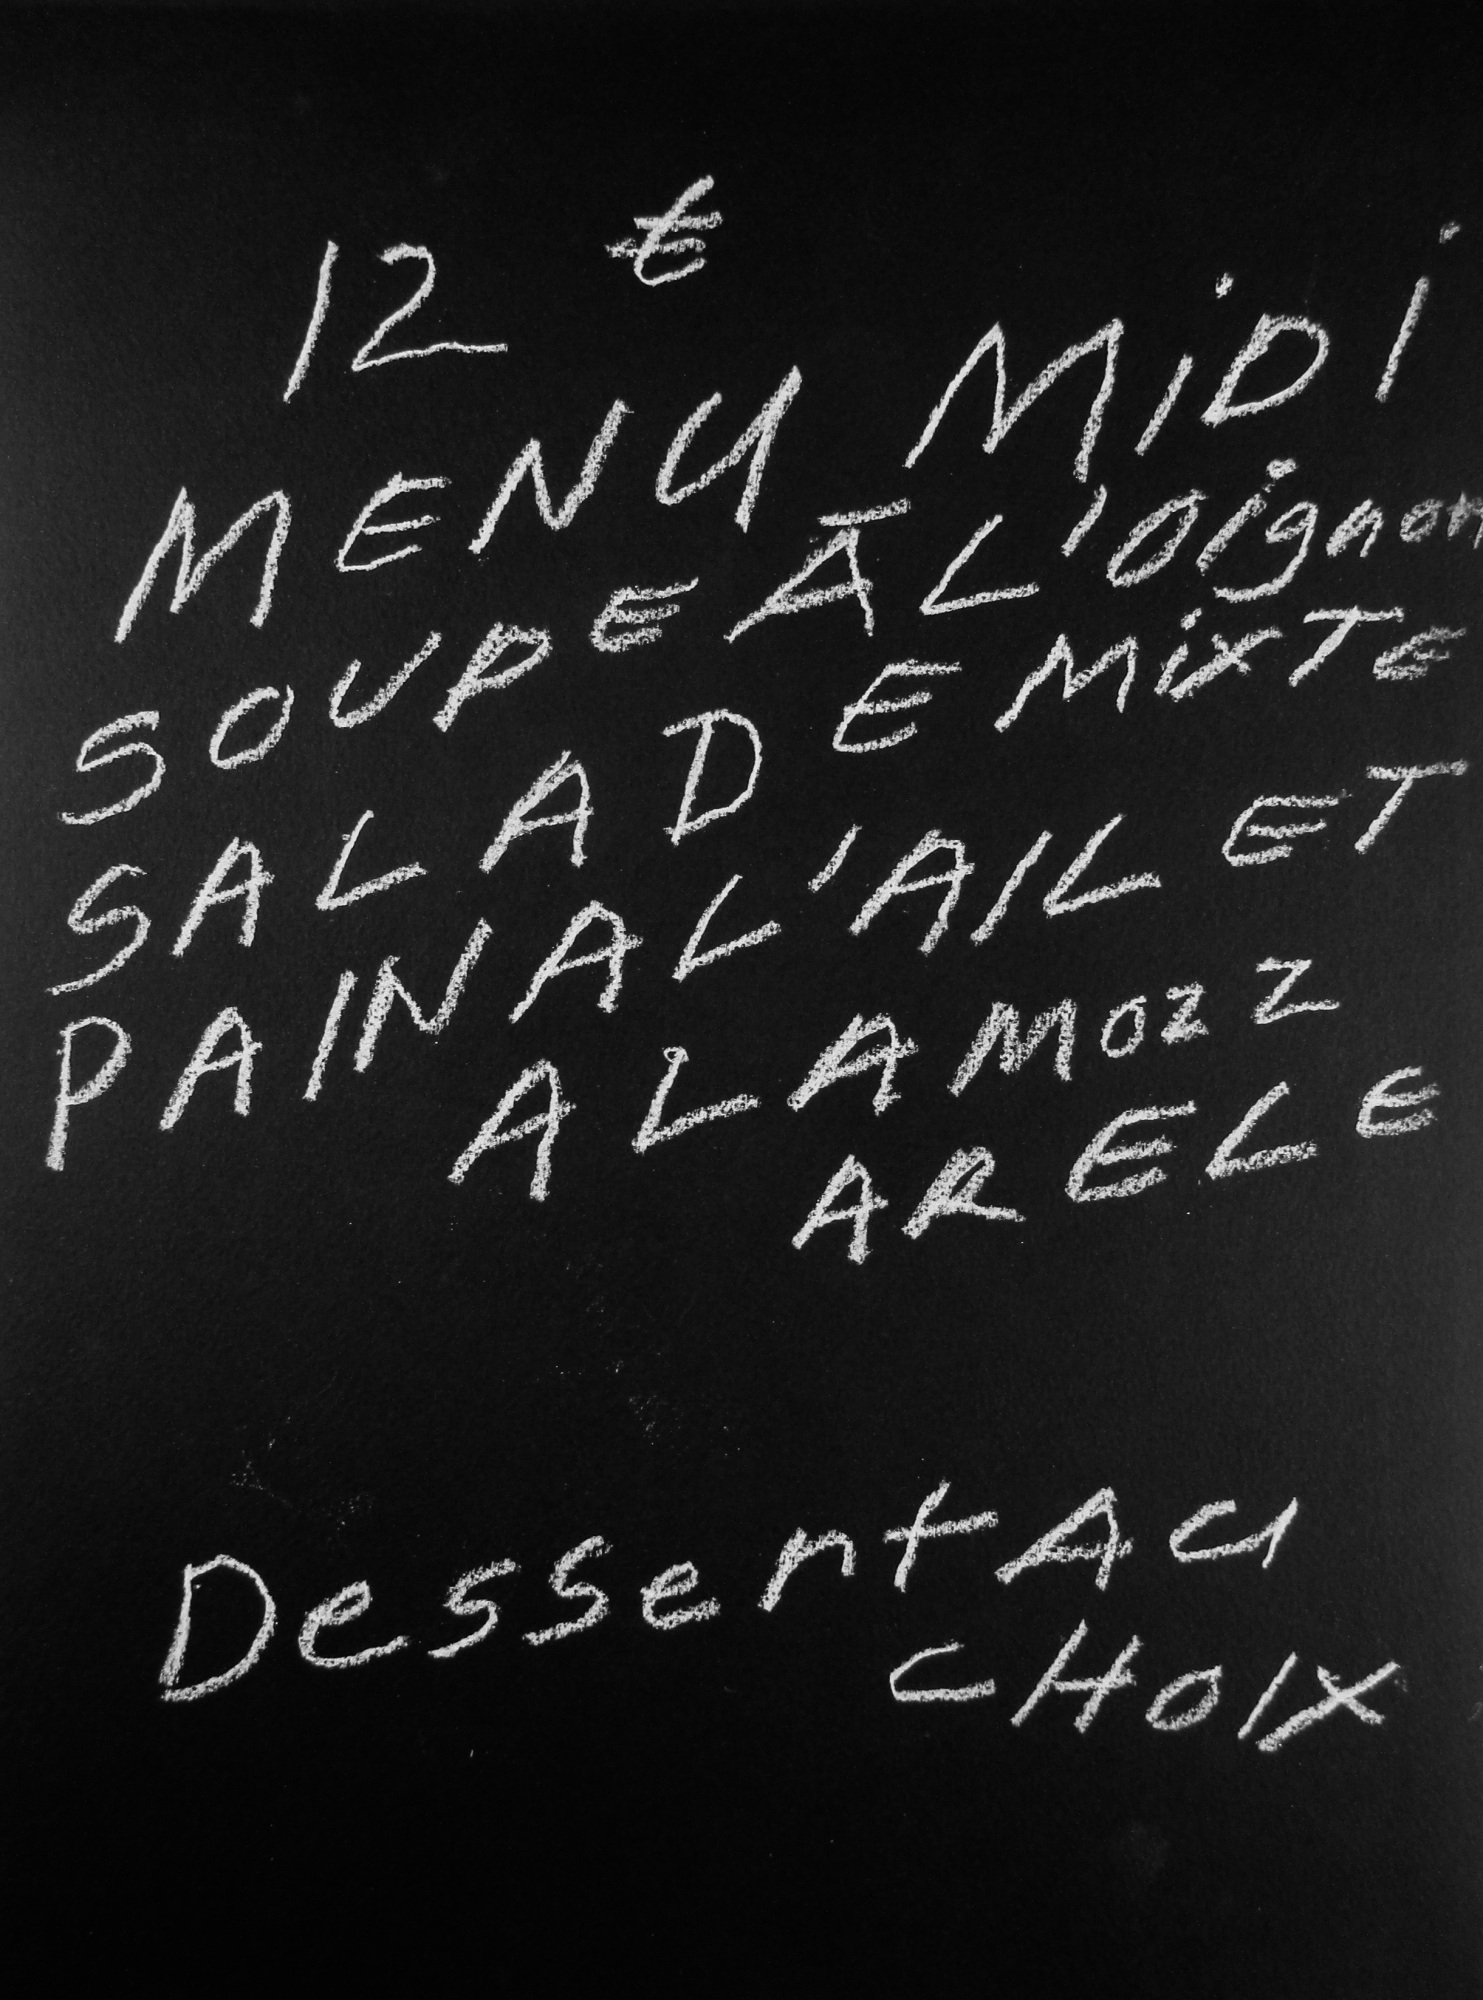 12 €
MENU MiDi
SOUPE À L'Oignon
SALADE MixTE
PAIN A L'AIL ET
A LA MOZZ
ARELE
Dessert AU
CHOIX